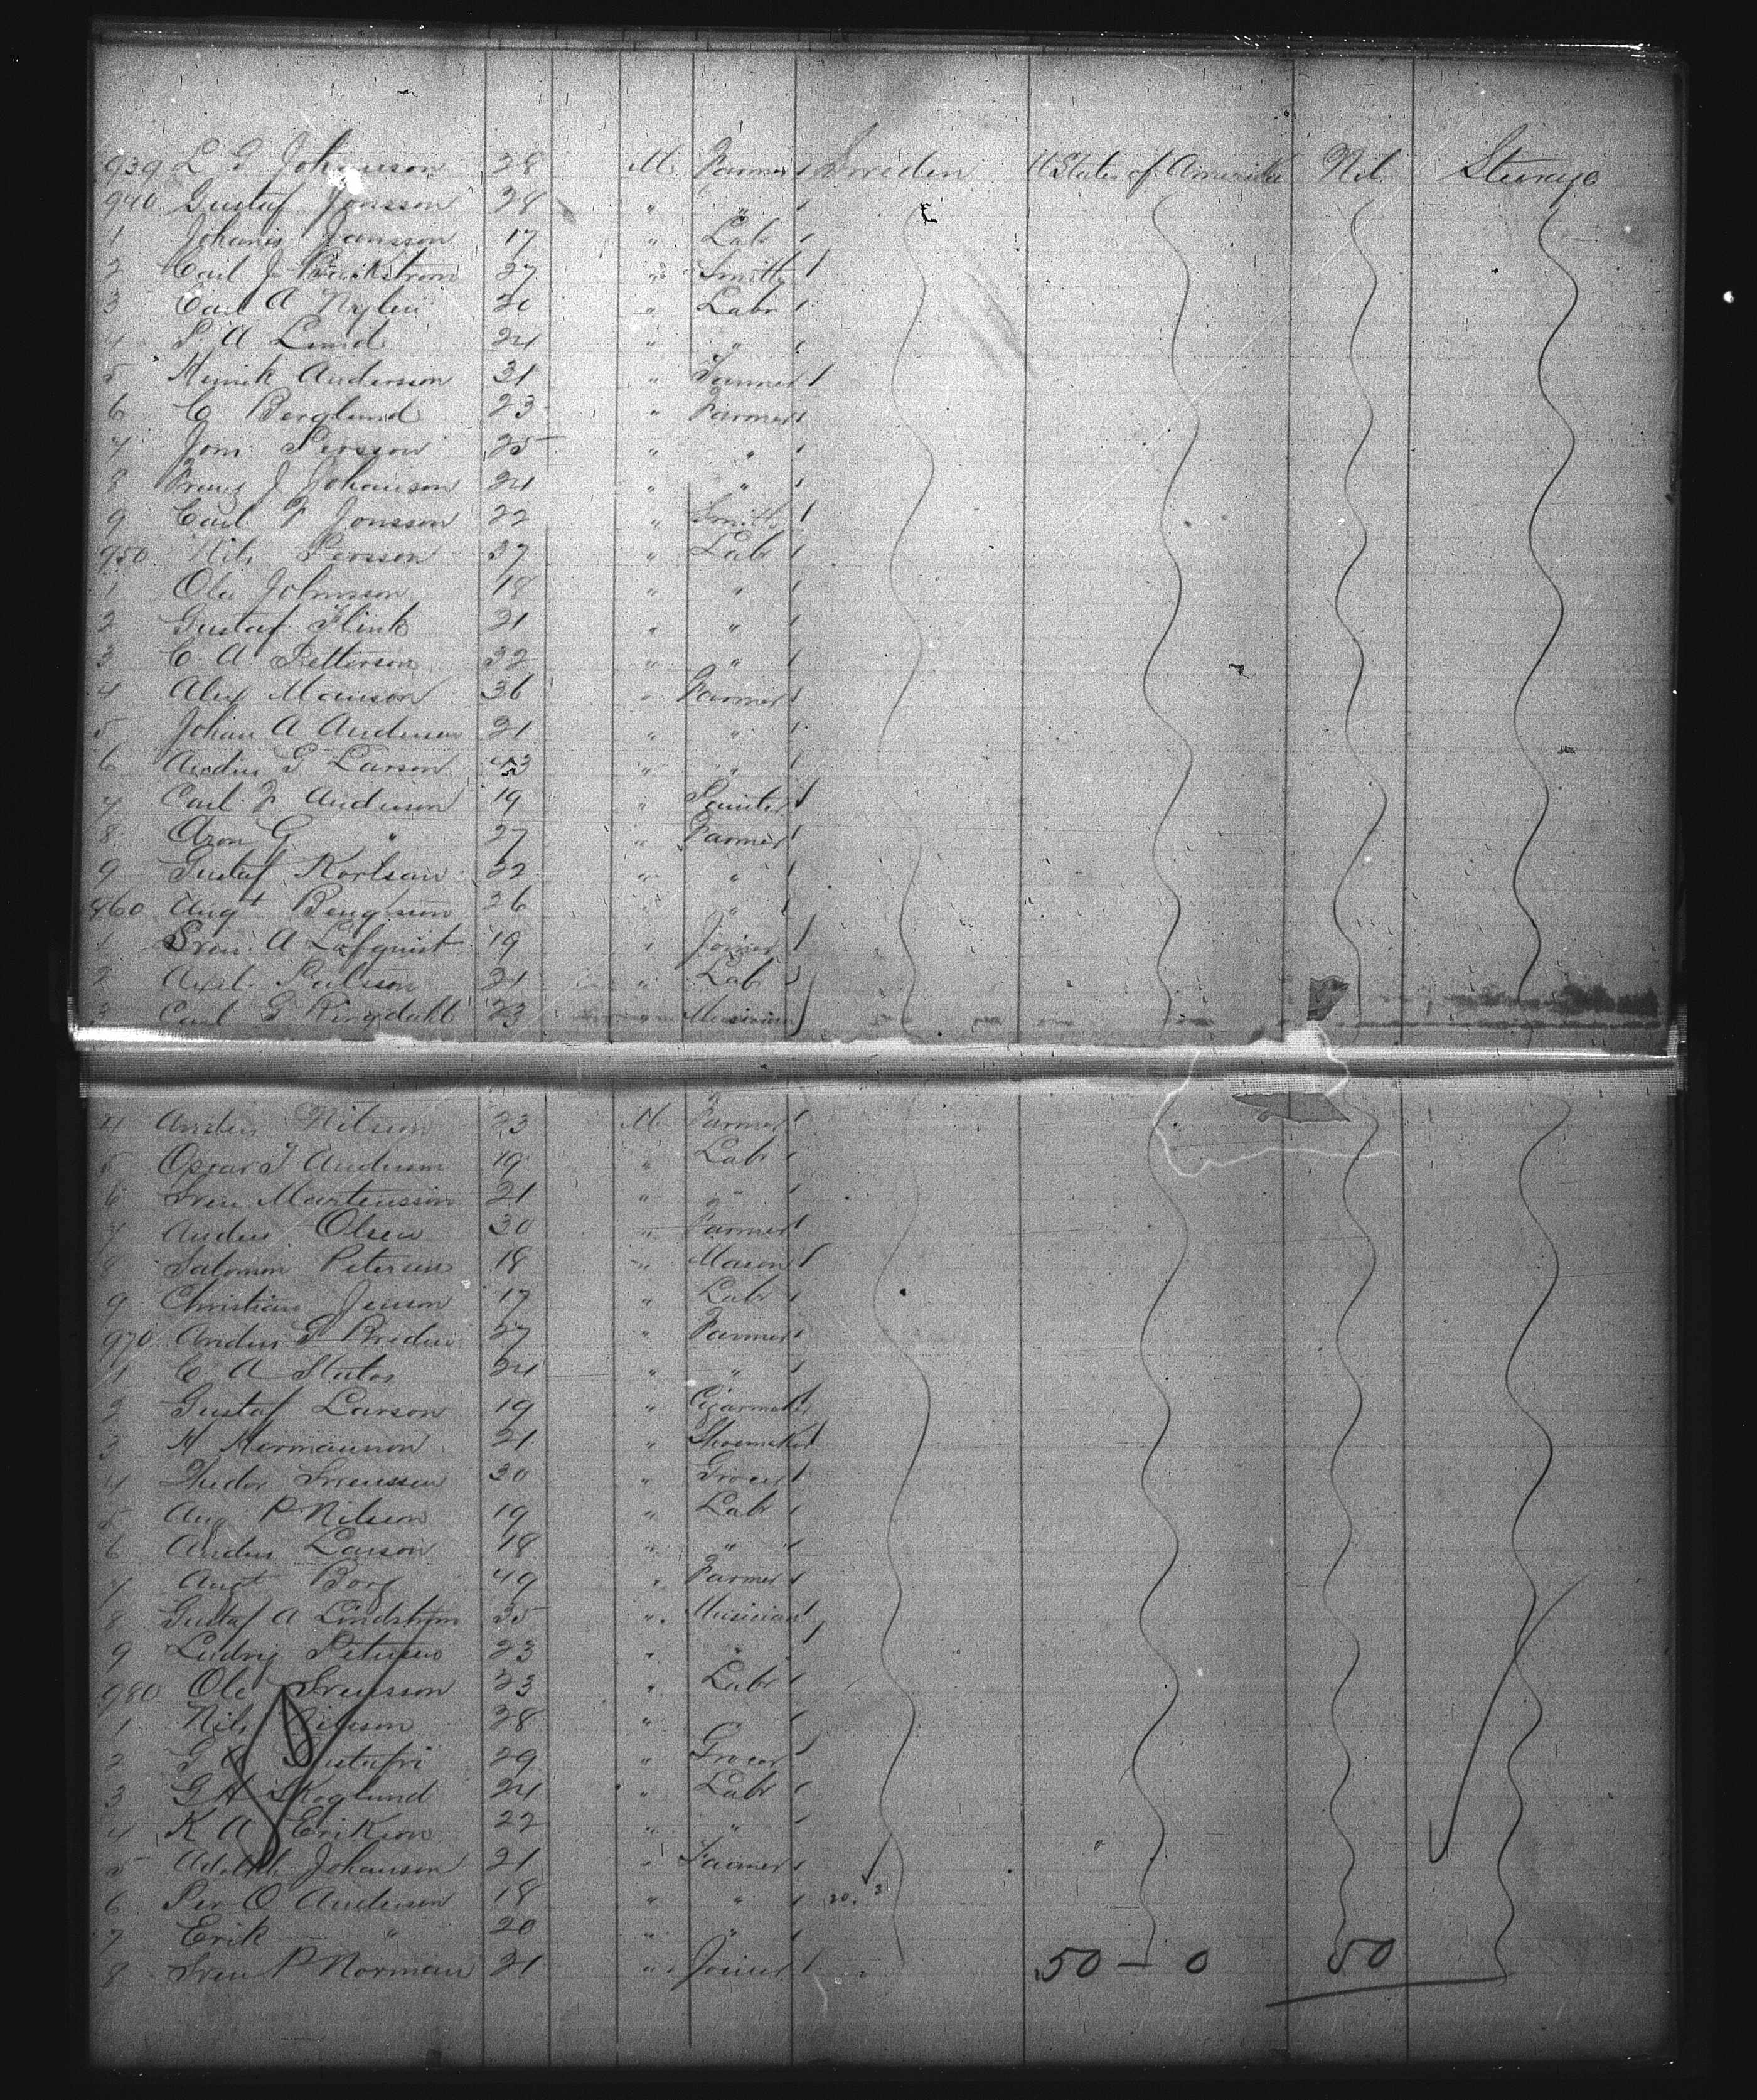 939 L G Johanson 28 M Farmer Sweden U States of America Nil Steerage
940 Gustaf Jonsson 28 " "
1 Johanis Jansson 17 " Labr
2 Carl J Backstrom 27 " Smith
3 Carl A Nylen " Labr
4 P. A Lund 24 " "
5 Henrik Andersson 31 "
6 C Berglund 23 " Farmer
7 Persson 25 " "
8 Franz J Johanson 24 " "
9 Carl F Jonsson 22 " Smith
950 Nils Persson 37 " Labr
1 Ola Johnsson 18 " "
2 Gustaf Flink 21 " "
3 C. A Petterson 32 " "
4 Alex Manson 36 " Farmer
5 Johan A Anderson 21 " "
6 Anders G Larson " "
7 Carl F. Anderson 19 " Painter
8 Aron G " 27 " Farmer
9 Gustaf Karlson " "
960 Augt Bengtson 36 " "
1 Sven A Lofquist 19 " Joiner
2 Axel Palsson 21 " Labr
3 Carl G Ringdahl 23 " Musician
4 Anders Nilson 23 M Farmer
5 Oscar F Anderson 19 " Labr
6 Sven Martensson 21 " "
7 Anders Olsen 30 " Farmer
8 Salomon Petersen 18 " Mason
9 Christian Jenson 17 " Labr
970 Anders G 27 " Farmer
1 C A 24 " "
2 Gustaf Larson 19 " Cigarmaker
3 H Hermanson 21 " Shoemaker
4 Thedor Svenssen 30 " Grocer
5 Aug P Nilson 19 " Labr
6 Anders Larson 18 " "
7 Augt Borg 49 " Farmer
8 Gustaf A Lindstrom 35 " Musician
9 Ludvig Petersen 23 " "
980 Ole Svensson 23 " Labr
1 Nils Nilsson 28 " "
2 G 29 " Grocer
3 G A Skoglund 24 " Labr
4 K A Erikson 22 " "
5 Adolph Johanson 21 " Farmer
6 Per O Anderson 18 " "
7 Erik " 20 " "
8 Sven P Norman 21 " Joiner 50 - 0 50